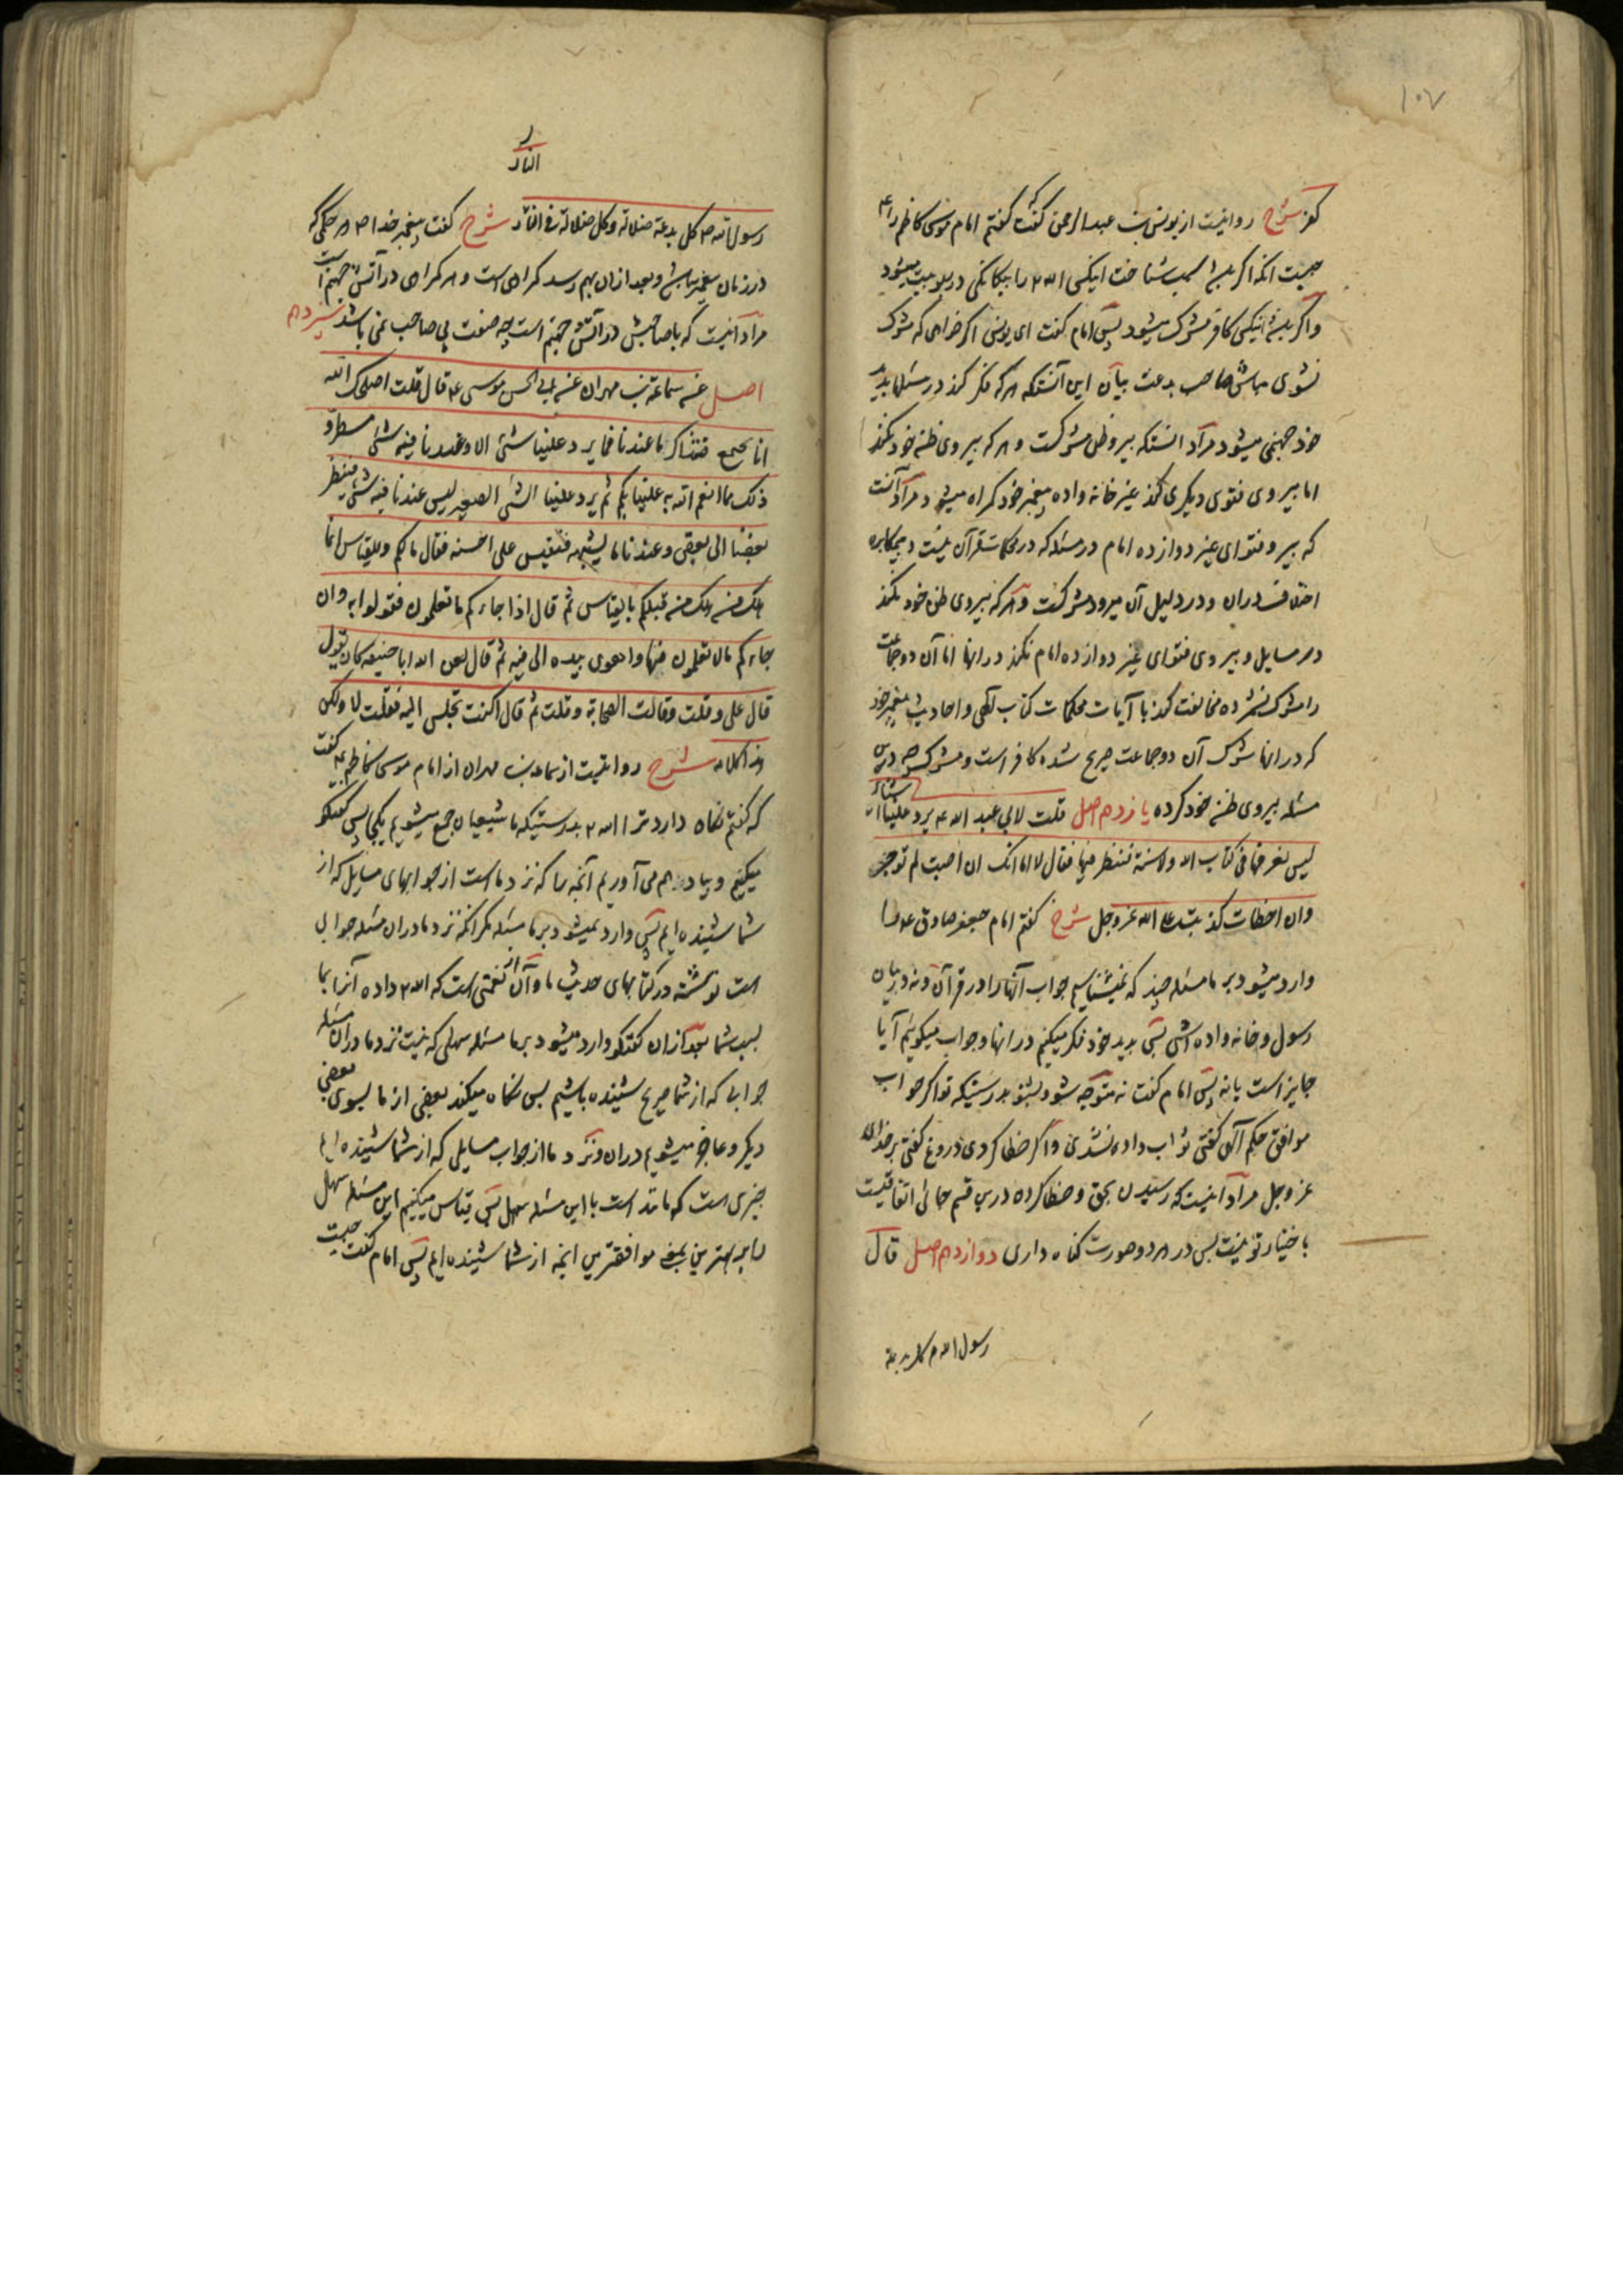 ۱۰۷
کفر شرح روایتست از یونس بن عبدالرحمن که گفت گفتم امام موسی کاظم را ع
چیست آنکه اگر بسبب شناخت اینکس الله ۲ را بیکانکی در ربوبیت میشود
و اگر اینکس کافر مشرک میشود پس امام گفت ای یونس اگر خواهی که مشرک
نشوی مباش صاحب بدعت بیان این آنستکه هر که فکر کند در مسئلها بدید
خود جهنمی میشود مراد آنستکه پیرو ظن مشرکست و هر که پیروی ظن خود نکند
اما پیروی فتوی دیگری کند غیر خانه واده پیغمبر خود گمراه میشود و مراد آنست
که پیرو فتوای غیر دوازده امام در مسئله که در محکمات قرآن نیست و بیمکابره
اختلاف در ان و در دلیل آن میرود مشرکست و هر که پیروی ظن خود نکند
در مسایل و پیروی فتوای غیر دوازده امام نکند در انها اما آن دو جماعت
را مشرک نشمرده مخالفت کند با آیات محکمات کتاب الهی و احادیث پیغمبر خود
که در انها شرک آن دو جماعت صریح شده کافر است و مشرک
مسئله پیروی ظن خود کرده یازدهم اصل قلت لابی عبد الله ع یرد علینا اشیاء
لیس نعرفها فی کتاب الله ولا سنة فننظر فیها فقال لا اما انک ان اصبت لم توجر
وان اخطات کذبت علی الله عز وجل شرح گفتم امام جعفر صادق ع را
وارد میشود بر ما مسئله چند که نمیشناسیم جواب آنها را در قرآن و نه در بیان
رسول و خانه واده اش پس بدید خود فکر میکنیم در انها و جواب میگوئیم آیا
جایز است یا نه پس امام گفت نه متوجه شو و بشنو بدرستیکه تو اگر جواب
موافق حکم الهی گفتی ثواب داده نشدی و اگر خطا کردی دروغ گفتی بر خدای
عز وجل مراد اینست که رسیدن بحق و خطا کرده درین قسم جائی اتفاقیست
باختیار تو نیست پس در هر دو صورت گناه داری دوازدهم اصل قال
رسول الله ص کل بدعة
ر
النار
رسول الله ص کل بدعة ضلالة وکل ضلالة فی النار شرح گفت پیغمبر خدا ص هر حکمی که
در زمان پیغمبر نباشد و بعد از ان بهم رسد گمراهی است و هر گمراهی در آتش جهنم است
مراد آنیست که با صاحبش در آتش جهنم است چه صفت بی صاحب نمی باشد سیزدهم
اصل عن سماعة بن مهران عن ابی الحسن موسی ع قال قلت اصلحک الله
انا نجتمع فنتذاکر ما عندنا فما یرد علینا شئ الا وعندنا فیه شئ مسطر و
ذلک مما انعم الله به علینا بکم ثم یرد علینا الشئ الصغیر لیس عندنا فیه شئ فینظر
بعضنا الی بعض وعندنا ما یشبهه فنقیس علی احسنه فقال ما لکم وللقیاس انما
هلک من هلک من قبلکم بالقیاس ثم قال اذا جاءکم ما تعلمون فقولوا به وان
جاءکم ما لا تعلمون فها واهوی بیده الی فیه ثم قال لعن الله ابا حنیفه کان یقول
قال علی وقلت وقالت الصحابة وقلت ثم قال اکنت تجلس الیه فقلت لا ولکن
هذا کلامه شرح روایتست از سماعه بن مهران از امام موسی کاظم ع گفت
که گفتم نگاه دارد ترا الله ۲ بدرستیکه ما شیعیان جمع میشویم یکجا پس گفتگو
میکنیم و بیاد هم می آوریم آنچه را که نزد ماست از جوابهای مسایل که از
شما شنیده ایم پس وارد نمیشود بر ما مسئله مگر آنکه نزد ما در ان مسئله جوابی
است نوشته در کتابهای حدیث ما و آن از نعمتی است که الله ۲ داده آنرا بما
بسبب شما بعد از ان گفتگو وارد میشود بر ما مسئله سهلی که نیست نزد ما در ان مسئله
جوابی که از شما صریح شنیده باشیم پس نگاه میکند بعضی از ما بسوی بعضی
دیگر و عاجز میشویم در ان و نزد ما از جواب مسایلی که از شما شنیده ایم
چیزی است که مانند است با این مسئله سهل پس قیاس میکنیم این مسئله سهل
را به بهترین یعنی موافقترین آنچه از شما شنیده ایم پس امام گفت چیست